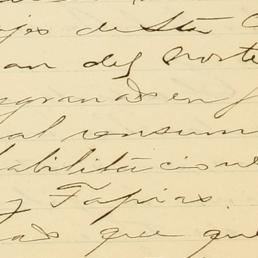 jes de Sta C
an del Norte
sgranas en f
al consum
habilitacione
y Tapias.
as que que